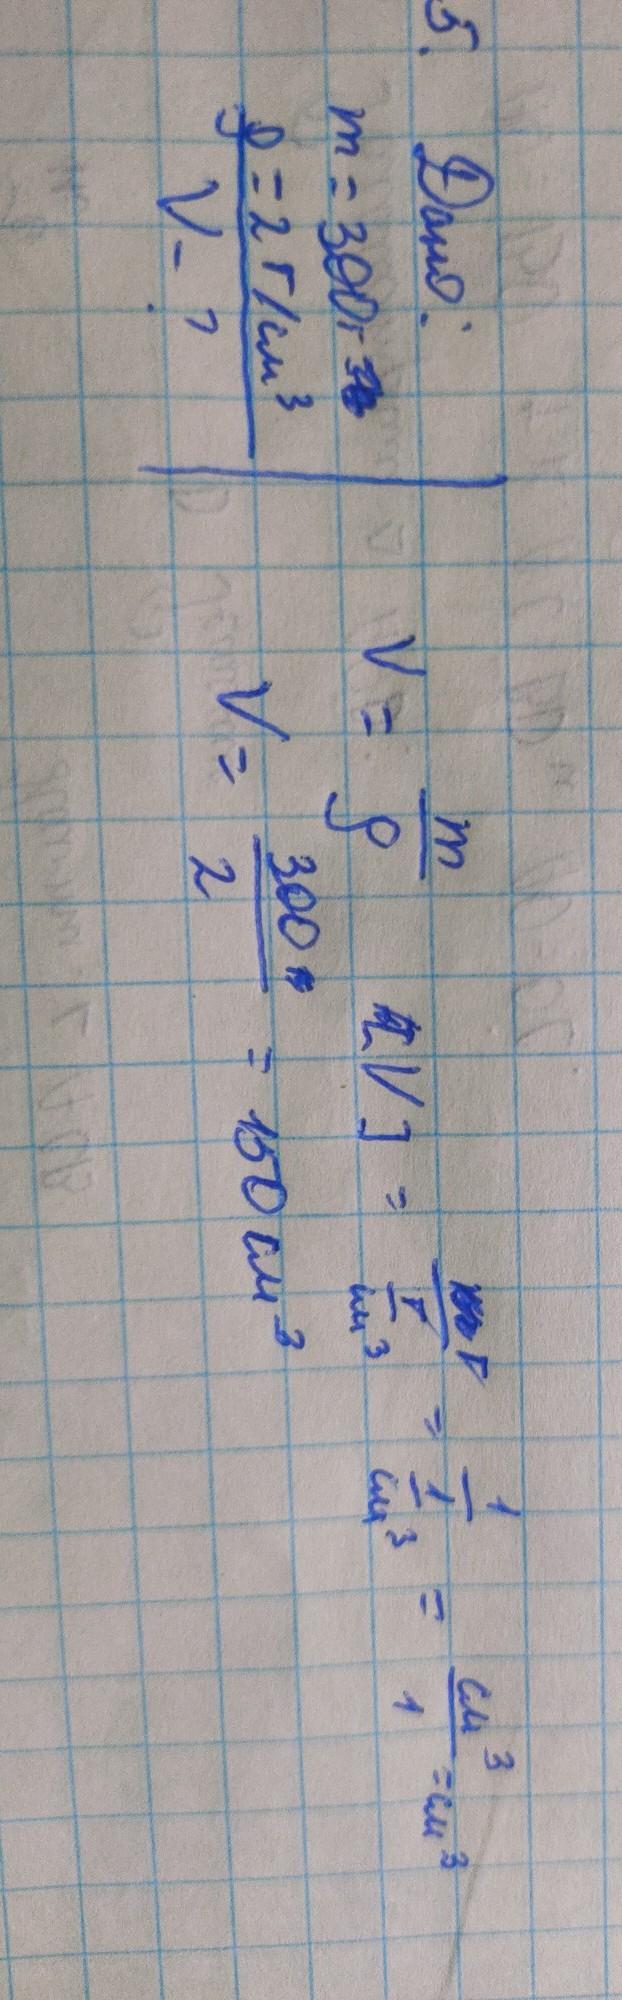 5. Дано:
m = 300г
ρ = 2 г/см³
V - ?
V = m/ρ [V] = г/(г/см³) = 1/(1/см³) = см³/1 = см³
V = 300/2 = 150 см³